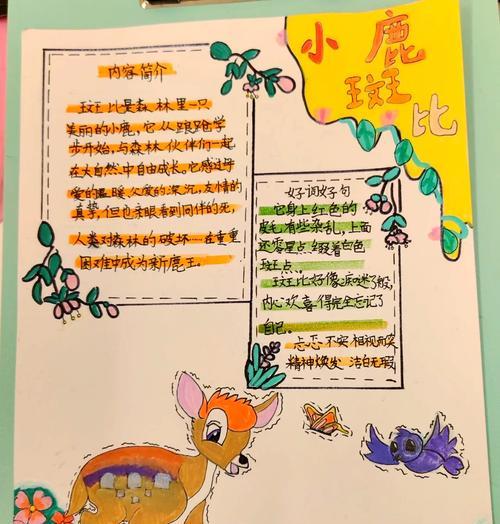 小鹿
斑比
内容简介
斑比是森林里一只
美丽的小鹿,它从踉跄学
步开始,与森林伙伴们一起
在大自然中自由成长,它感过母
爱的温暖、父爱的深沉,友情的
真挚,但也亲眼看到同伴的死,
人类对森林的破坏……在重重
困难中成为新鹿王。
好词好句
它身上红色的
皮毛有些杂乱,上面
还零星点缀着白色
斑点。
斑比好像滚迷了般,
内心欢喜得完全忘记了
自己。
忐忑不安 相视而笑
精神焕发 洁白无瑕